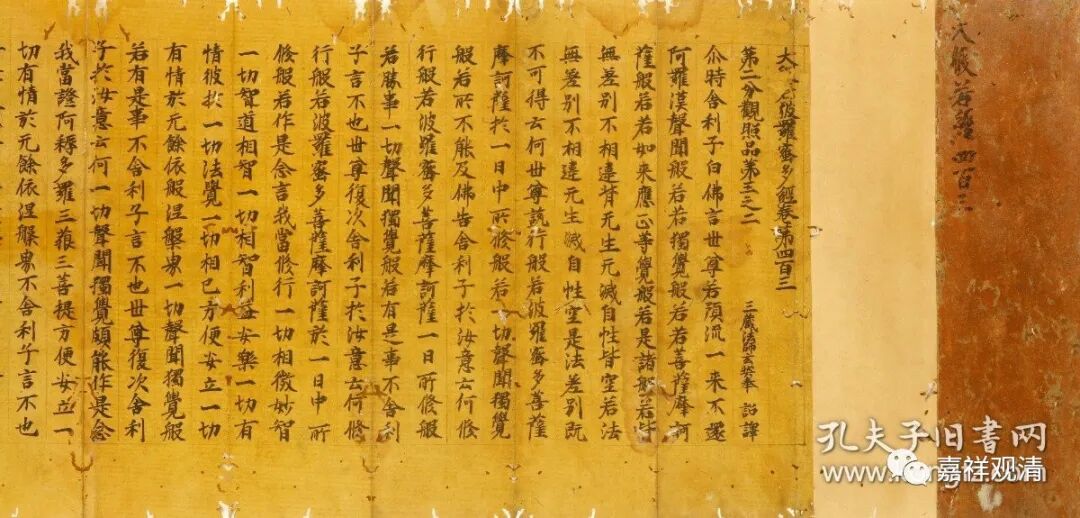 大般若經四百三
大波羅蜜多經卷第四百三
第二分觀照品第三之二 三藏法師玄奘奉 詔譯
尒時舍利子白佛言世尊若預流一來不還
阿羅漢聲聞般若若獨覺般若若菩薩摩訶
薩般若若如來應正等覺般若是諸般若皆
無差別不相違背无生无滅自性皆空若法
無差別不相違无生滅自性空是法差別既
不可得云何世尊說行般若波羅蜜多菩薩
摩訶薩於一日中所修般若一切聲聞獨覺
般若所不能及佛告舍利子於汝意云何修
行般若波羅蜜多菩薩摩訶薩一日所修般
若勝事一切聲聞獨覺般若有是事不舍利
子言不也世尊復次舍利子於汝意云何修
行般若波羅蜜多菩薩摩訶薩於一日中所
修般若作是念言我當修行一切相微妙智
一切智道相智一切相智利益安樂一切有
情彼於一切法覺一切相已方便安立一切
有情於无餘依般涅槃界一切聲聞獨覺般
若有是事不舍利子言不也世尊復次舍利
子於汝意云何一切聲聞獨覺頗能作是念
我當證阿耨多羅三藐三菩提方便安立一
切有情於无餘依涅槃界不舍利子言不也
孔夫子旧书网
嘉祥观清